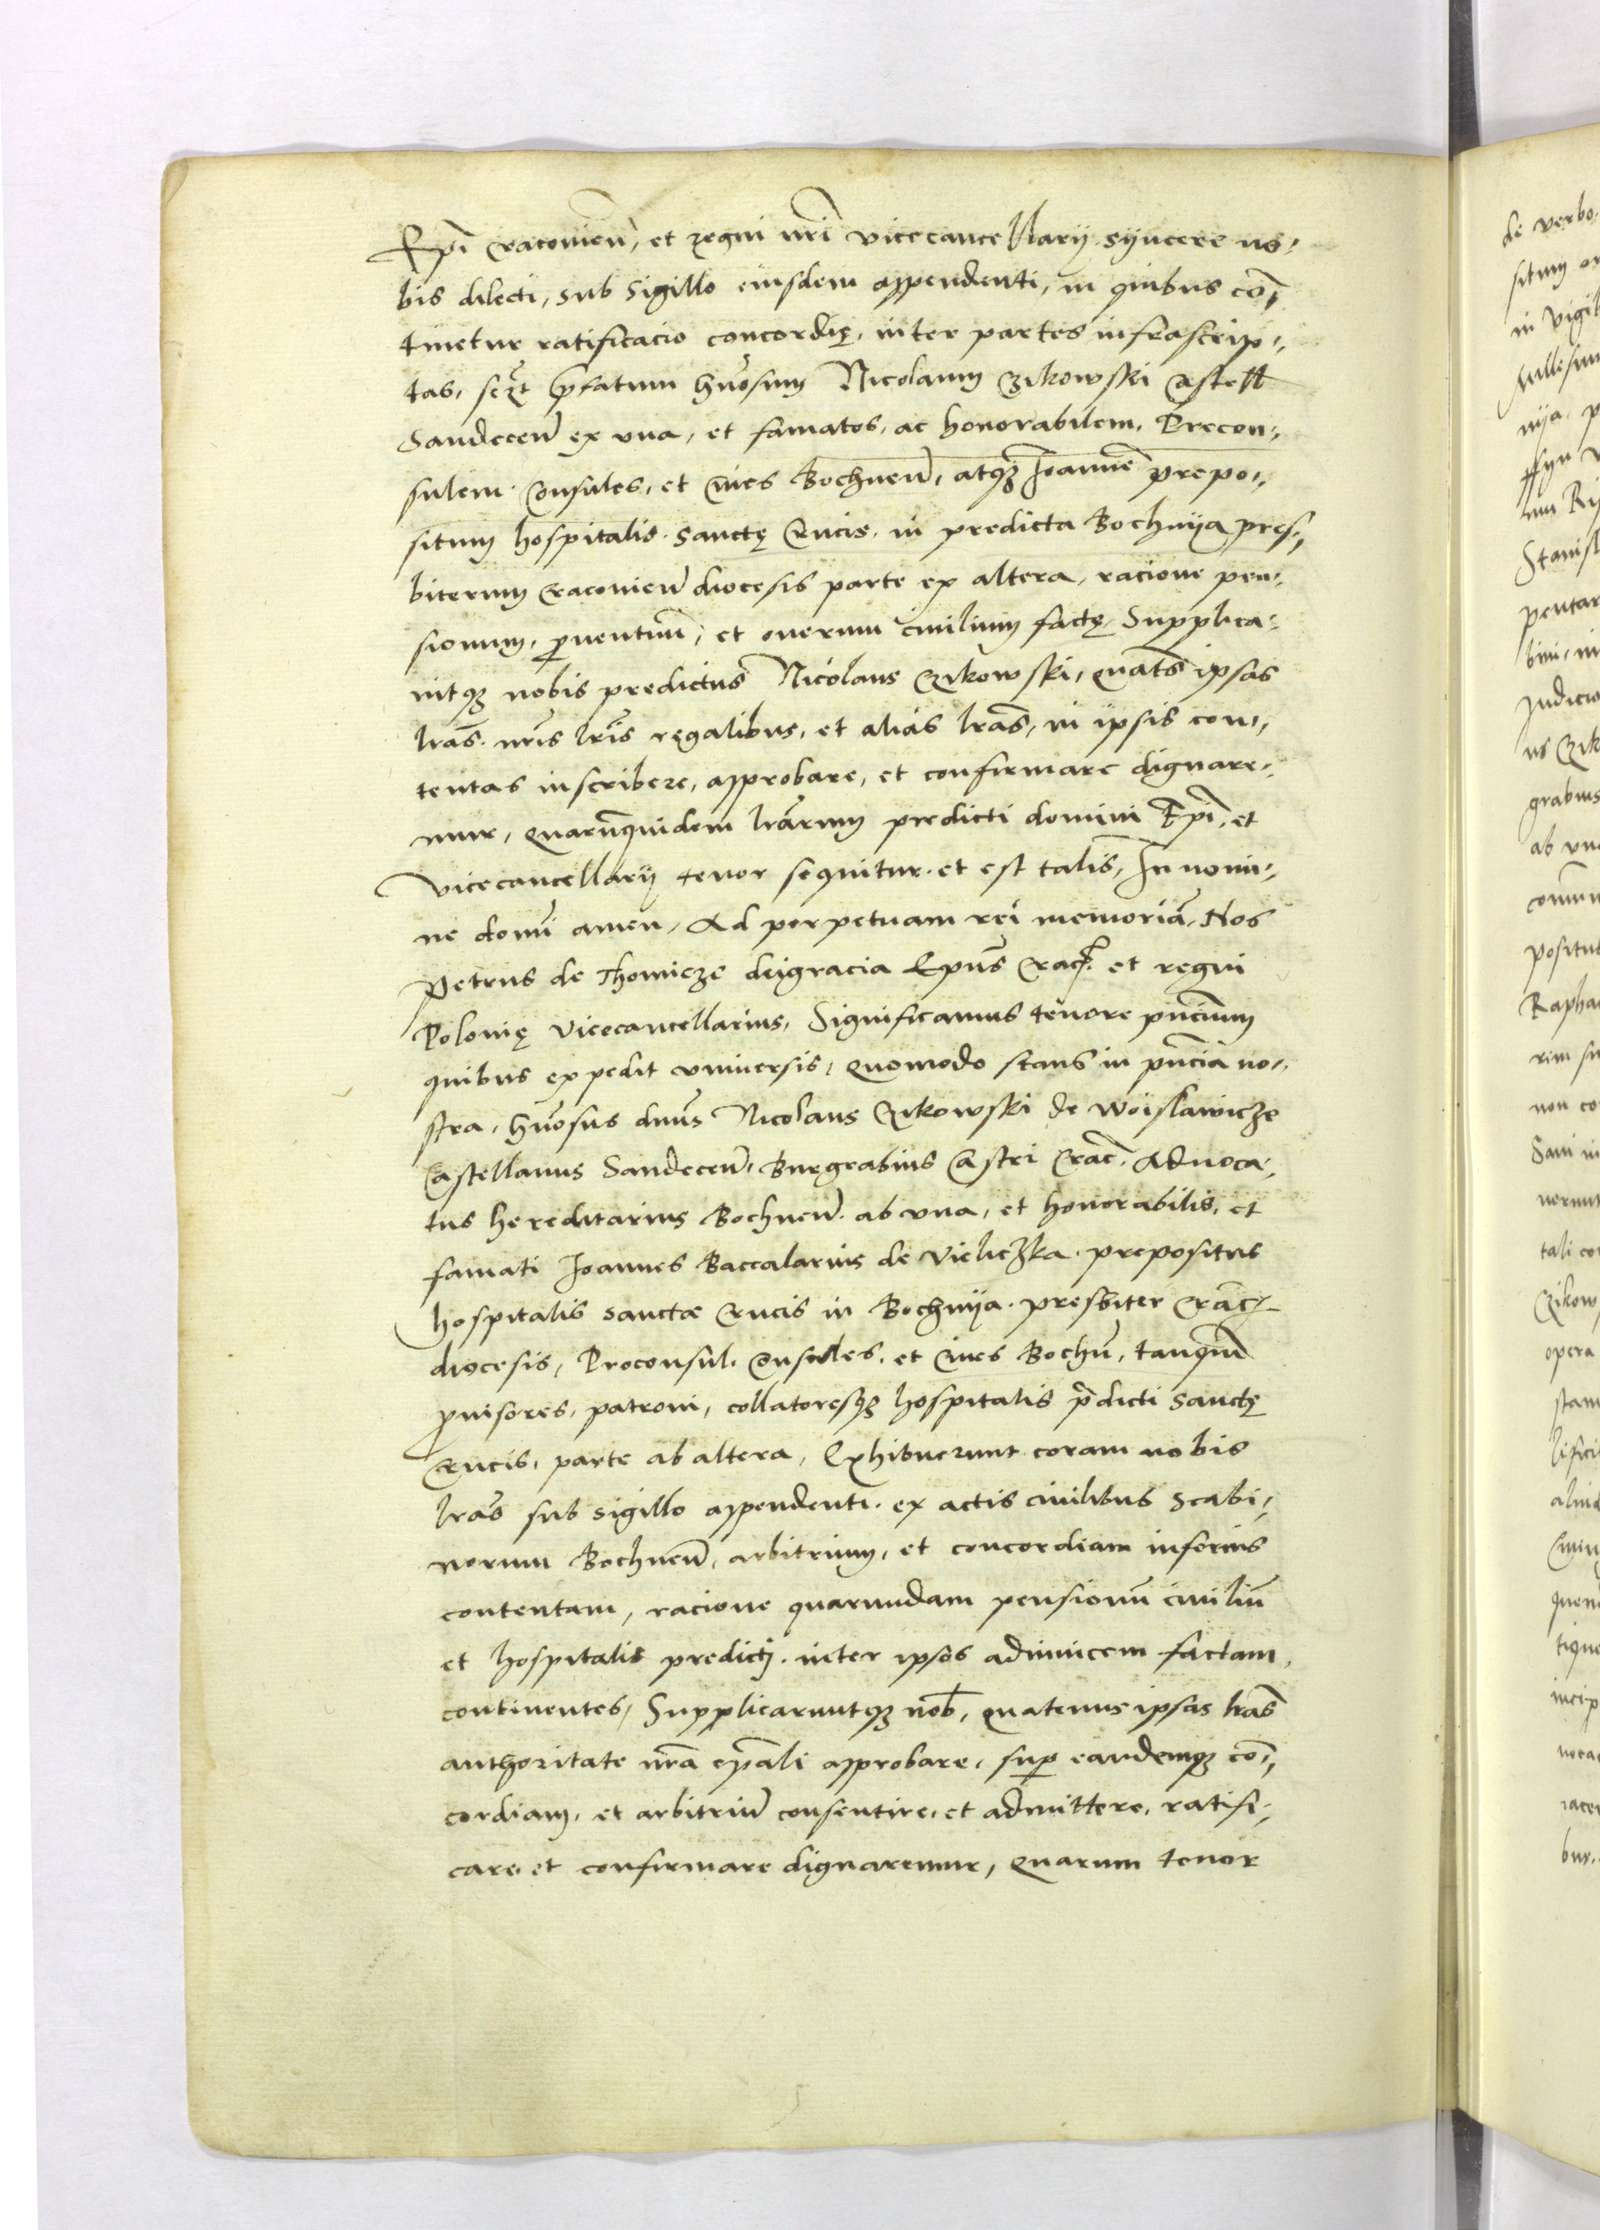 Epi Cracovien̄, et regni nr̄i vicecancellarij syncere no-
bis dilecti, sub sigillo eiusdem appendenti, in quibus cō-
tinetur ratificacio concordię, inter partes infrascrip-
tas, sczt p̄fatum gn̄osum Nicolaum Czikowski Castell
Sandecen̄ ex una, et famatos, ac honorabilem, Precon-
sulem Consules, et Cives Bochnen̄, atqz Joannē prepo-
situm hospitalis Sanctę Crucis in predicta Bochnija pres-
biterum Cracovien̄ diocesis parte ex altera, racione pen-
sionum, proventuū, et onerum civilium factę, Supplica-
vitqz nobis predictus Nicolaus Czikowski, quaten̄s ipsas
lr̄as nr̄is lr̄is regalibus, et alias lr̄as, in ipsis con-
tentas inscribere, approbare, et confirmare dignare-
mur, quarumquidem lr̄arum predicti domini Epī, et
Vicecancellarij tenor sequitur et est talis, In nomi-
ne domī amen, Ad perpetuam rei memoriā, Nos
Petrus de Thomicze deigracia Epūs Crac. et regni
Polonię Vicecancellarius, Significamus tenore pn̄cium
quibus expedit universis, quomodo stans in pn̄cia no-
stra, gn̄osus dn̄us Nicolaus Czikowski de Woislawicze
Castellanus Sandecen̄, Burgrabius Castri Crac̄, Advoca-
tus hereditarius Bochnen̄ ab una, et honorabilis, et
famati Joannes Baccalarius de Vieliczka prepositus
hospitalis sanctae Crucis in Bochnija presbiter Crac̄
diocesis, Proconsul, Consules, et Cives Bochn̄, tanqm̄
provisores, patroni, collatoresqz hospitalis p̄dicti Sanctę
Crucis, parte ab altera, Exhibuerunt coram nobis
lr̄as sub sigillo appendenti ex actis civilibus Scabi-
norum Bochnen̄, arbitrium, et concordiam inferius
contentam, racione quarundam pensionū civiliū
et hospitalis predicti inter ipsos adinvicem factam,
continentes, Supplicaruntqz nob̄, quatenus ipsas lr̄as
authoritate nr̄a ep̄ali approbare, sup eandemqz cō-
cordiam, et arbitriū consentire, et admittere, ratifi-
care et confirmare dignaremur, quarum tenor